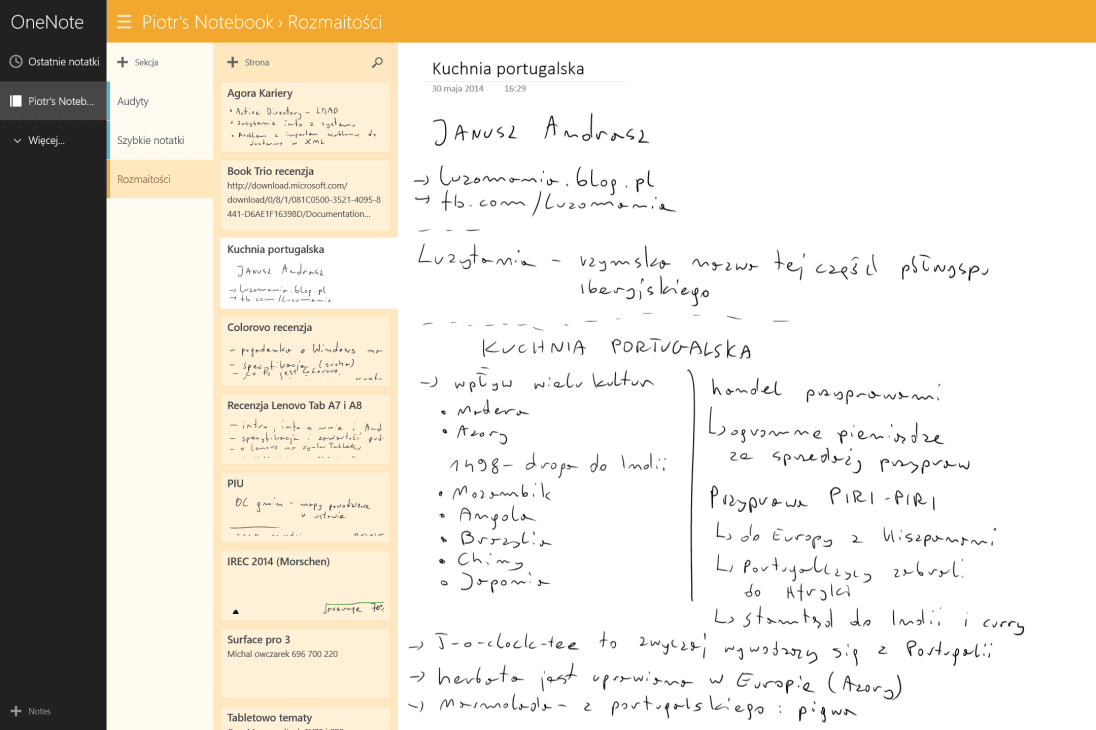 OneNote
Ostatnie notatki
Piotr's Noteb...
Więcej...
Notes
Piotr's Notebook › Rozmaitości
Sekcja
Audyty
Szybkie notatki
Rozmaitości
Strona
Agora Kariery
• Active Directory – LDAP
Book Trio recenzja
http://download.microsoft.com/
download/0/8/1/081C0500-3521-4095-8
441-D6AE1F16398D/Documentation...
Kuchnia portugalska
Janusz Andrasz
→ luzomania.blog.pl
→ fb.com/Luzomania
Colorovo recenzja
– pogadanka o Windows
– specyfikacja (sucha)
Recenzja Lenovo Tab A7 i A8
– intro, info o mnie i And
– specyfikacja i zawartość pud.
– o Lenovo na rynku Tabletów
PIU
OC gmin – mapy powodziowe
w ustawie
IREC 2014 (Morschen)
Surface pro 3
Michal owczarek 696 700 220
Tabletowo tematy
Kuchnia portugalska
30 maja 2014 16:29
Janusz Andrasz
→ luzomania.blog.pl
→ fb.com/Luzomania
Luzytania – rzymska nazwa tej części półwyspu
iberyjskiego
KUCHNIA PORTUGALSKA
→ wpływ wielu kultur
• Madera
• Azory
1498 – droga do Indii
• Mozambik
• Angola
• Brazylia
• Chiny
• Japonia
handel przyprawami
↳ ogromne pieniądze
za sprzedaż przypraw
Przyprawa PIRI-PIRI
↳ do Europy z Hiszpanami
↳ Portugalczycy zabrali
do Afryki
↳ stamtąd do Indii i curry
→ 5-o-clock-tee to zwyczaj wywodzący się z Portugalii
→ herbata jest uprawiana w Europie (Azory)
→ Marmolada – z portugalskiego : pigwa